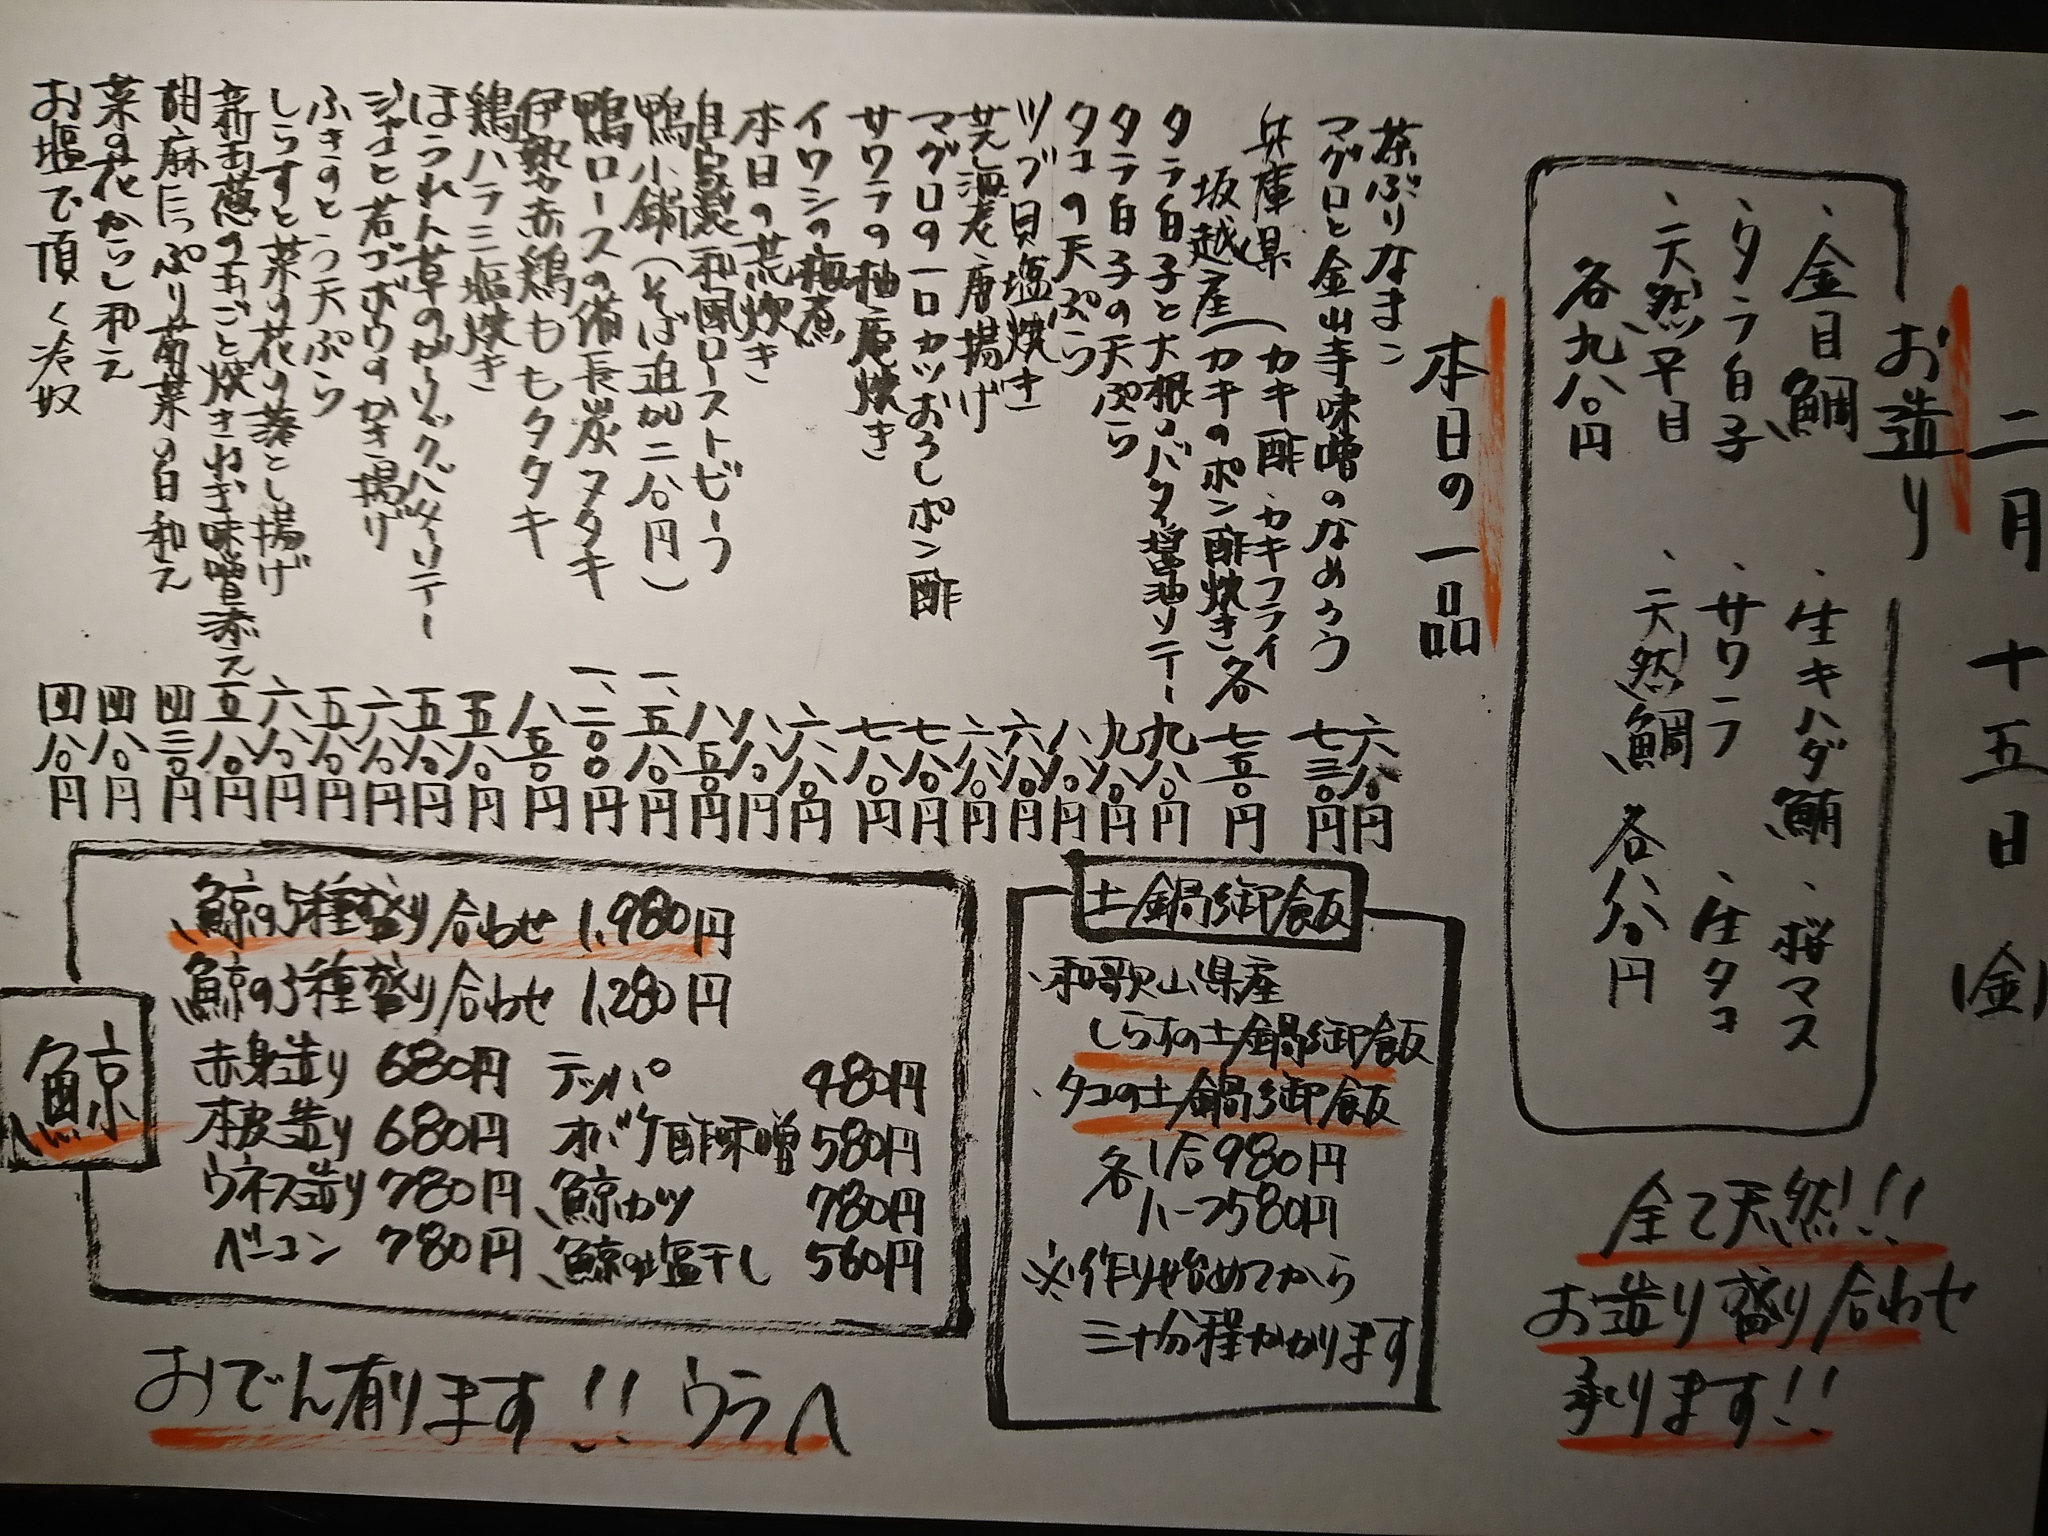 二月十五日(金)
お造り
、金目鯛
、生キハダ鮪
、桜マス
、タラ白子
、サワラ
、生タコ
、天然平目
、天然鯛
各九八〇円
各八八〇円
全て天然!!
お造り盛り合わせ
承ります!!
本日の一品
茶ぶりなまこ 六八〇円
マグロと金山寺味噌のなめろう 七三〇円
兵庫県坂越産(カキ酢・カキフライ
カキのポン酢焼き 各七五〇円
タラ白子と大根のバター醤油ソテー 九八〇円
タラ白子の天ぷら 九八〇円
タコの天ぷら 八八〇円
ツブ貝塩焼き 六八〇円
芝海老唐揚げ 六八〇円
マグロの一口カツおろしポン酢 七八〇円
サワラの柚庵焼き 七八〇円
イワシの梅煮 六八〇円
本日の荒炊き 八八〇円
自家製和風ローストビーフ 八五〇円
鴨小鍋(そば追加二八〇円) 一、五八〇円
鴨ロースの備長炭タタキ 一、二〇〇円
伊勢赤鶏ももタタキ 八五〇円
鶏ハラミ塩焼き 五八〇円
ほうれん草のガーリックバターソテー 五八〇円
ジャコと若ゴボウのかき揚げ 六八〇円
ふきのとう天ぷら 五八〇円
しらすと菜の花の落とし揚げ 六八〇円
新玉葱の玉ごと焼きねぎ味噌添え 五八〇円
胡麻たっぷり菊菜の白和え 四三〇円
菜の花からし和え 四八〇円
お塩で頂く冷奴 四八〇円
土鍋御飯
、和歌山県産
しらすの土鍋御飯
、タコの土鍋御飯
各1合980円
ハーフ580円
※作り始めてから
三十分程かかります
鯨
鯨の5種盛り合わせ 1,980円
鯨の3種盛り合わせ 1,280円
赤身造り 680円 テッパ 480円
本皮造り 680円 オバケ酢味噌 580円
ウネス造り 780円 鯨カツ 780円
ベーコン 780円 鯨の塩干し 560円
おでん有ります!! ウラへ